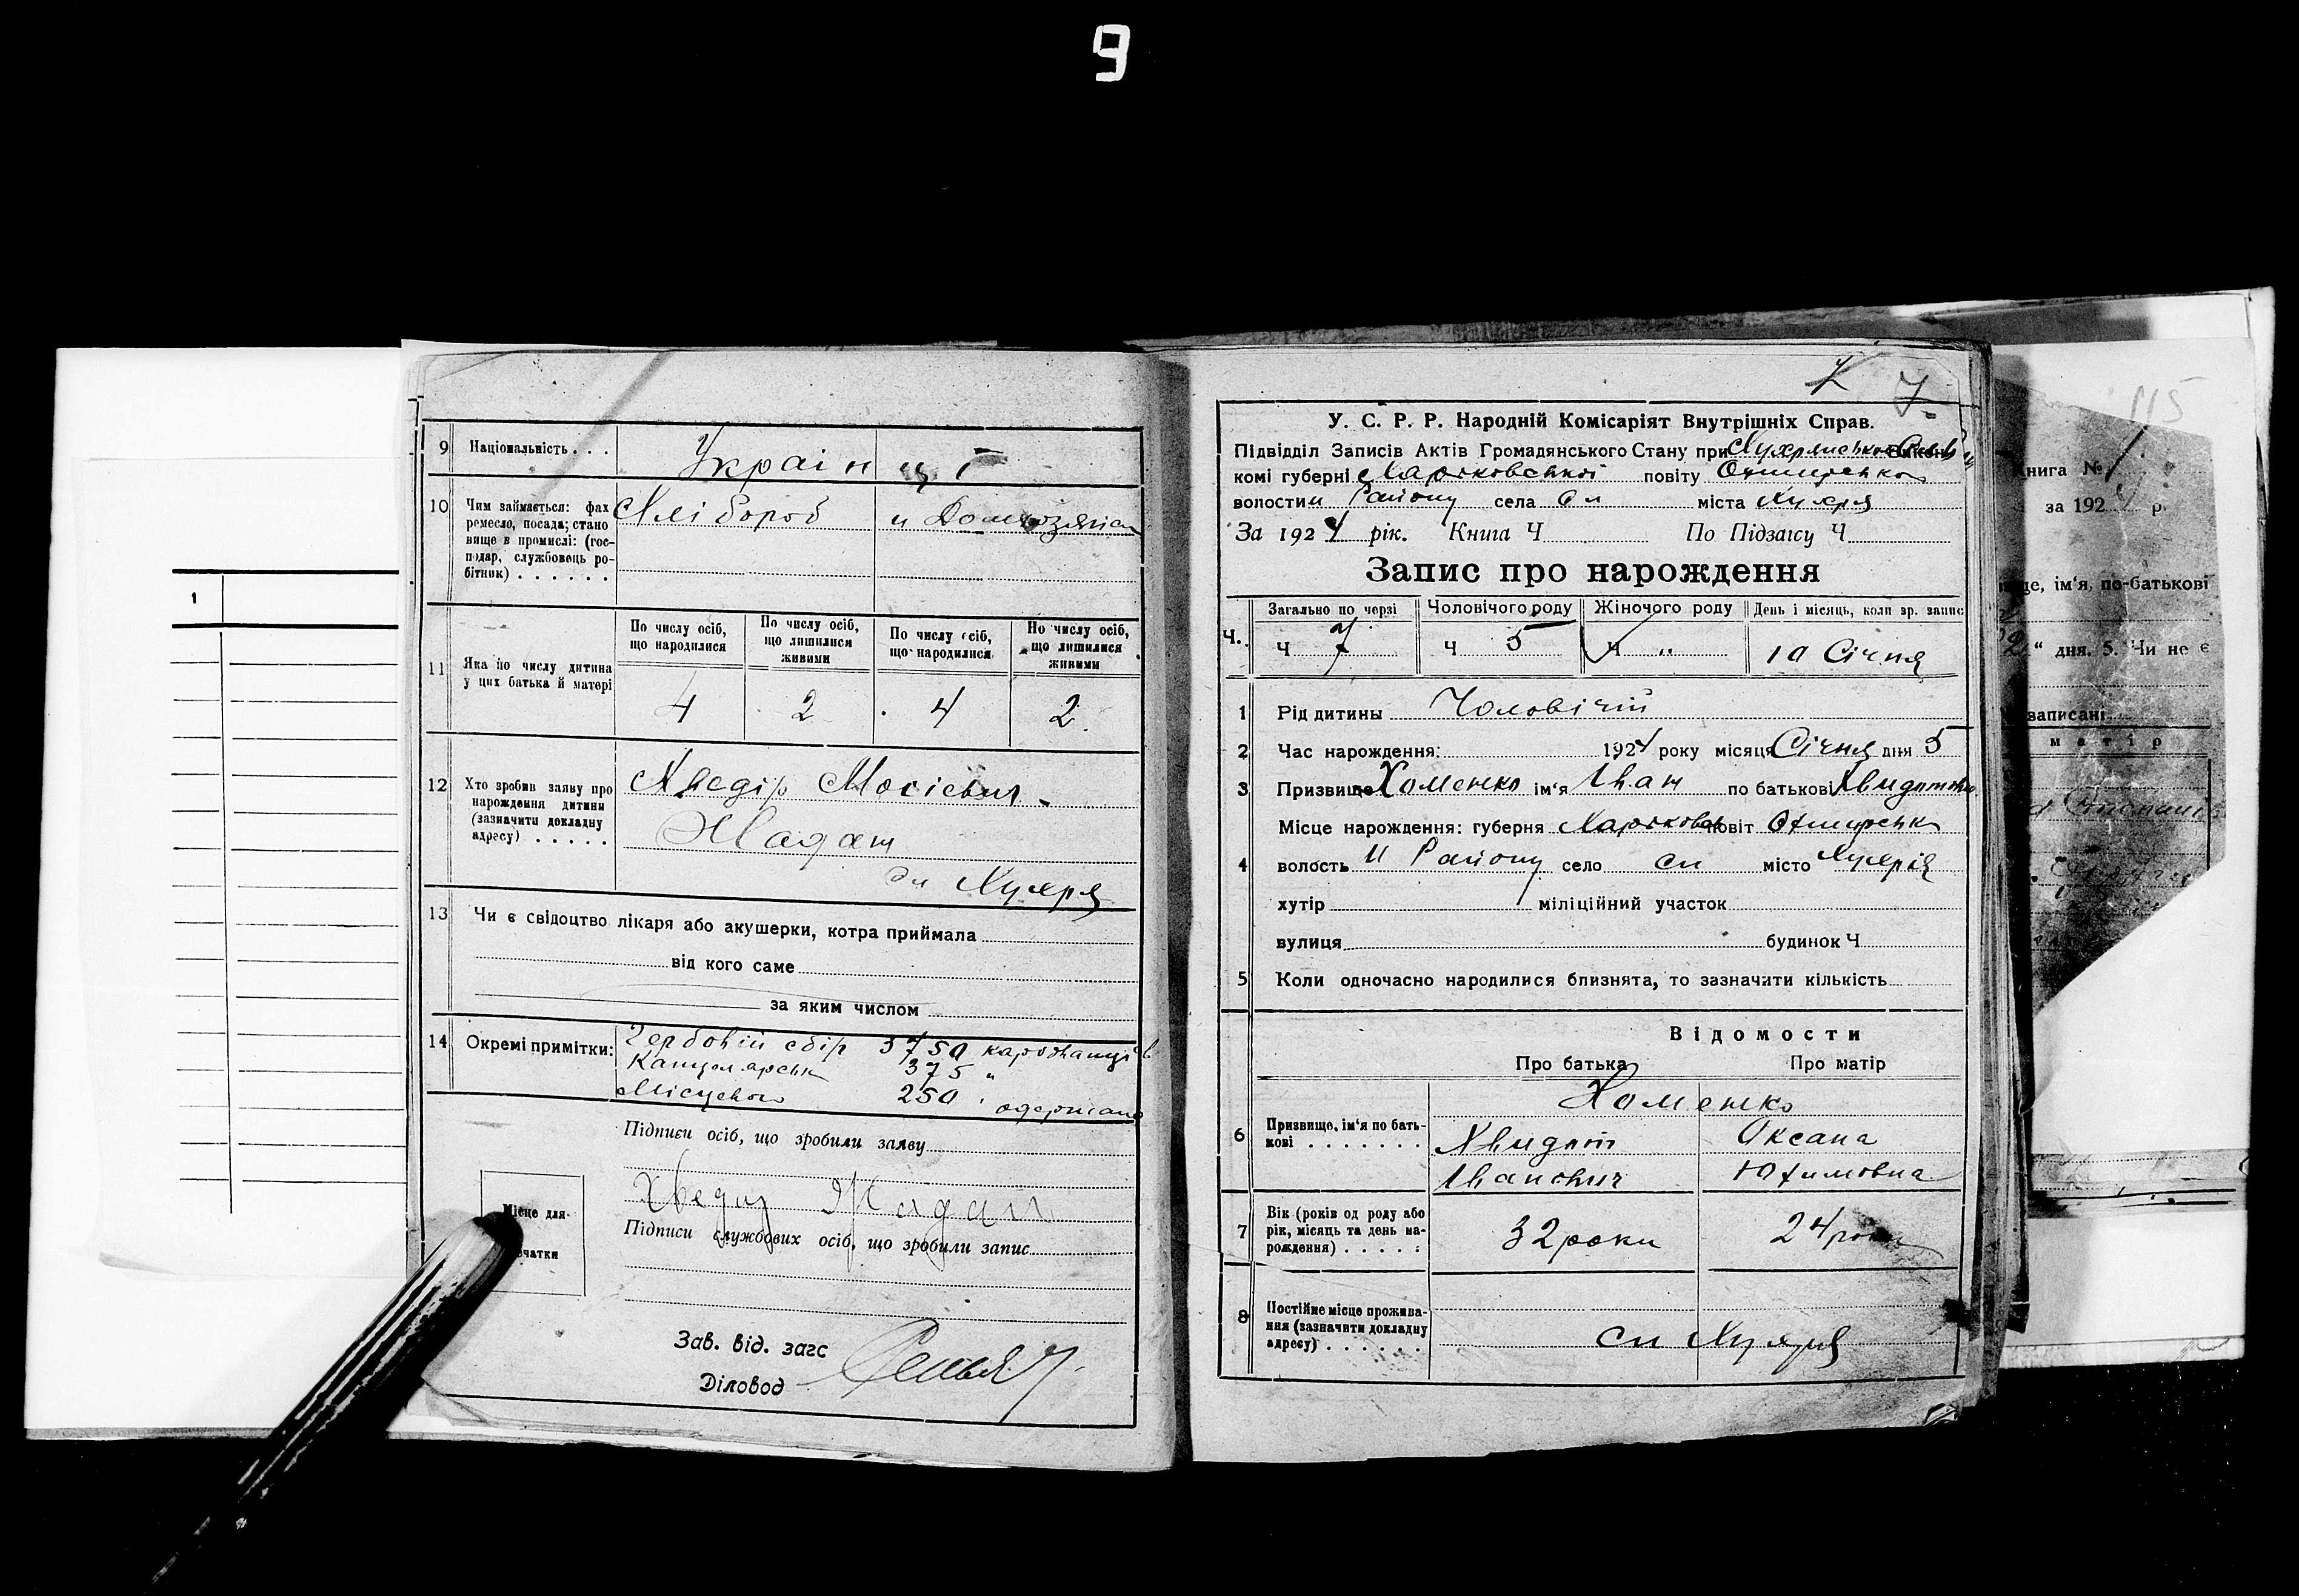 9
9 Національність . . . Українці
10 Чим займається: фах Хлібороб и Домохозяїка
ремесло, посада; стано
вище в промислі: (гос-
подар, службовець ро-
бітник) . . . . . .
По числу осіб, що народилися
По числу осіб, що лишилися живими
По числу осіб, що народилися
Но числу осіб, що лишилися живими
11 Яка по числу дитина
у цих батька й матері
4 2 4 2
12 Хто зробив заяву про
нарождення дитини
(зазначити докладну
адресу) . . . . .
Хведір Мосієвич
Жадан
сл Хухря
13 Чи є свідоцтво лікаря або акушерки, котра приймала
від кого саме
за яким числом
14 Окремі примітки: Гербовій сбір 3750 карбованців
Канцелярськ 375 "
Місцевого 250 " одержано
Підписи осіб, що зробили заяву
Хведир Жадан
Підписи службових осіб, що зробили запис
Місце для
печатки
Зав. від. загс
Діловод
7
У. С. Р. Р. Народній Комісаріят Внутрішніх Справ.
Підвідділ Записів Актів Громадянського Стану при
комі губерні Харьковської повіту Охтирсько
волости и Району села сл міста Хухря
За 1924 рік. Книга Ч По Підзагсу Ч
Запис про нарождення
Загально по черзі Чоловічого роду Жіночого роду День і місяць, коли зр. запис
Ч. Ч 7 Ч 5 Ч " 10 Січня
1 Рід дитины Чоловічій
2 Час нарождення: 1924 року місяця Січня дня 5
3 Призвище Хоменко ім'я Іван по батькові
4 Місце нарождення: губерня Харьковсь повіт Охтирськ
волость и Району село сл місто Хухрія
хутір міліційний участок
вулиця будинок Ч
5 Коли одночасно народилися близнята, то зазначити кількість
Відомости
Про батька Про матір
Хоменко
6 Призвище, ім'я по бать-
кові . . . . . . .
Хвидот Оксана
Іванович Юхимовна
7 Вік (років од роду або
рік, місяць та день на-
рождення) . . . . :
32 роки 24 роки
8 Постійне місце прожива-
ння (зазначити докладну
адресу) . . . . . .
сл Хухря
115
Книга №
за 192 р.
ім'я, по-батькові
2" дня. 5. Чи не є
записані
матір
1